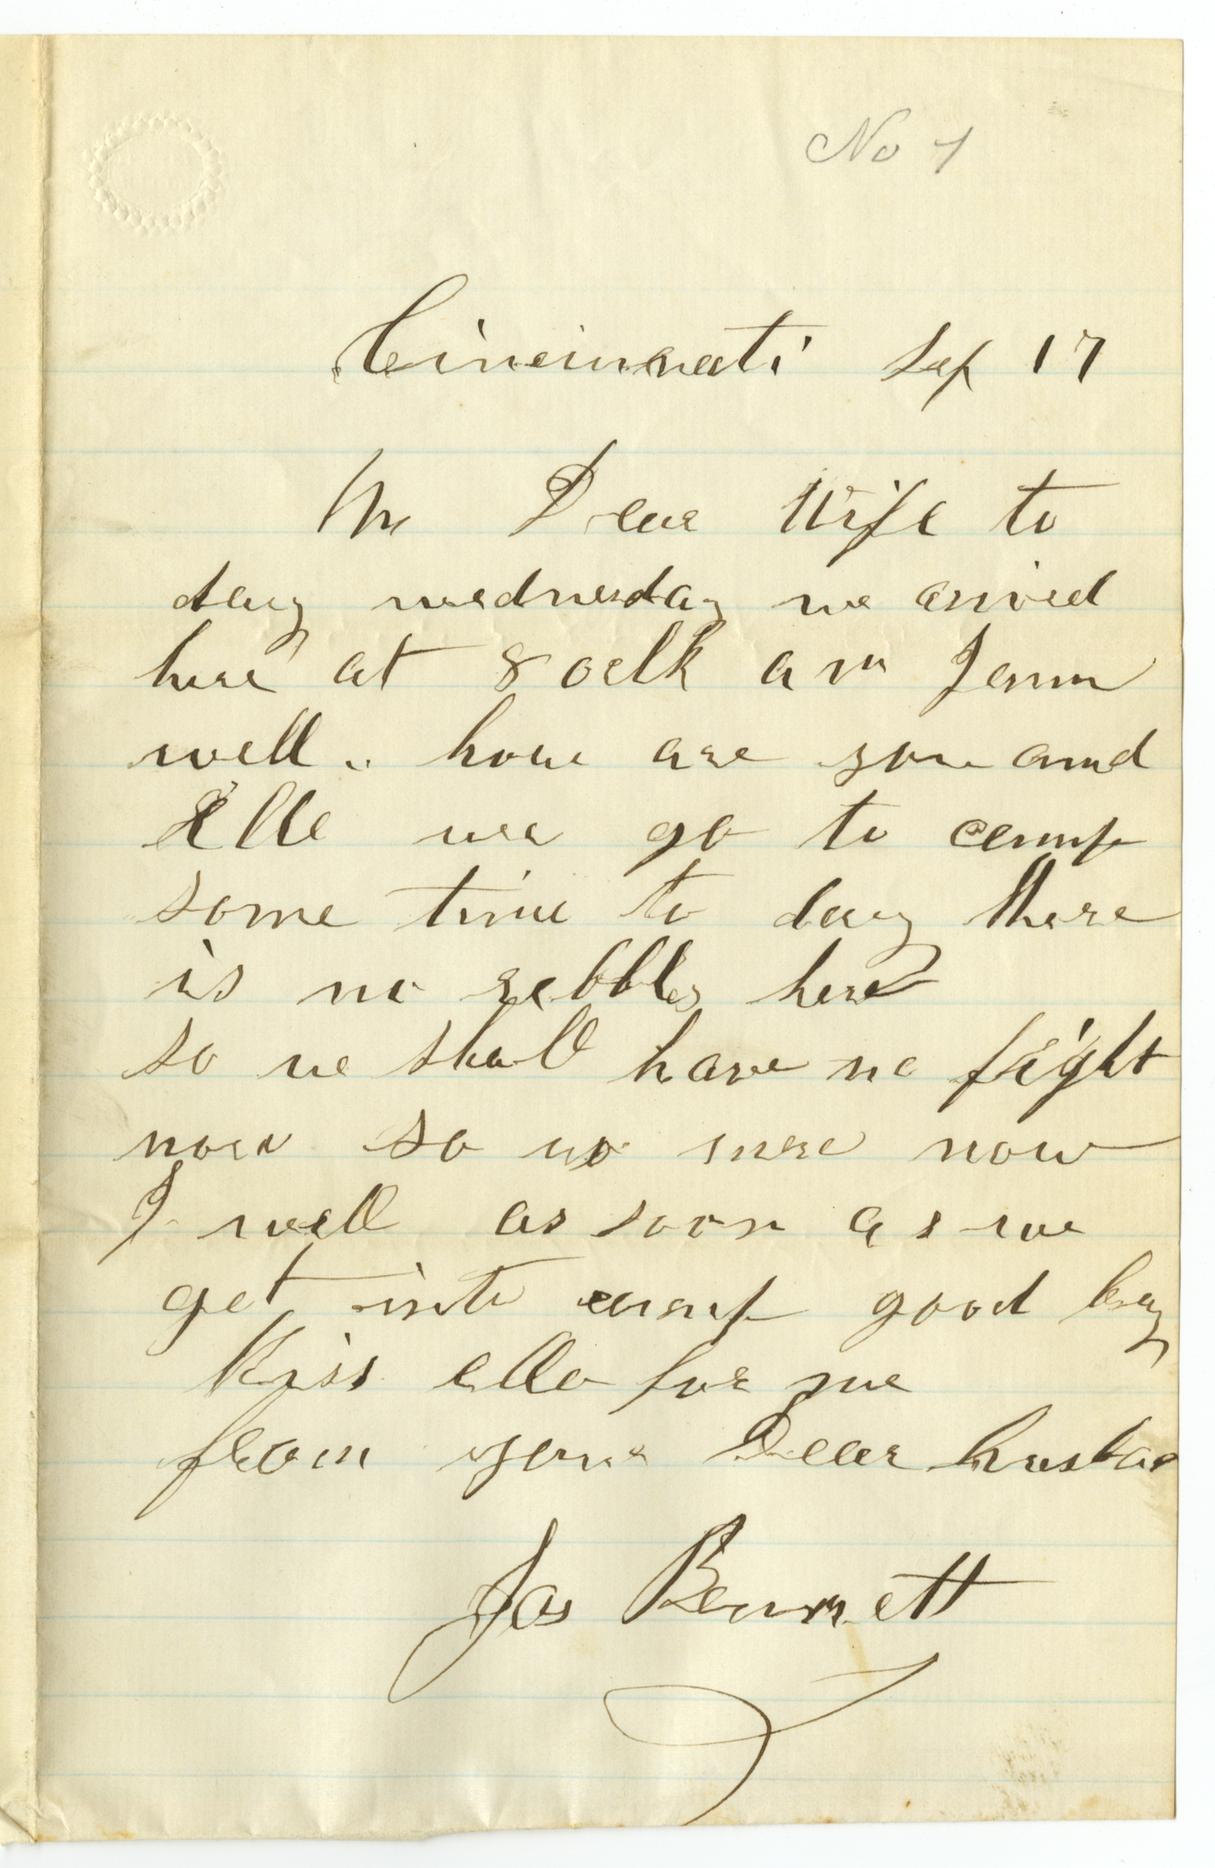 No 1
Cincinnati Sep 17
My Dear Wife to
day wednesday we arrived
here at 8 oclk a m I am
well. how are you and
Ella we go to camp
some time to day there
is no rebbles here
so we shall have no fight
now so no more now
I well as soon as we
get into camp good by
Kiss ella for me
from your Dear husban
Jas Bennett